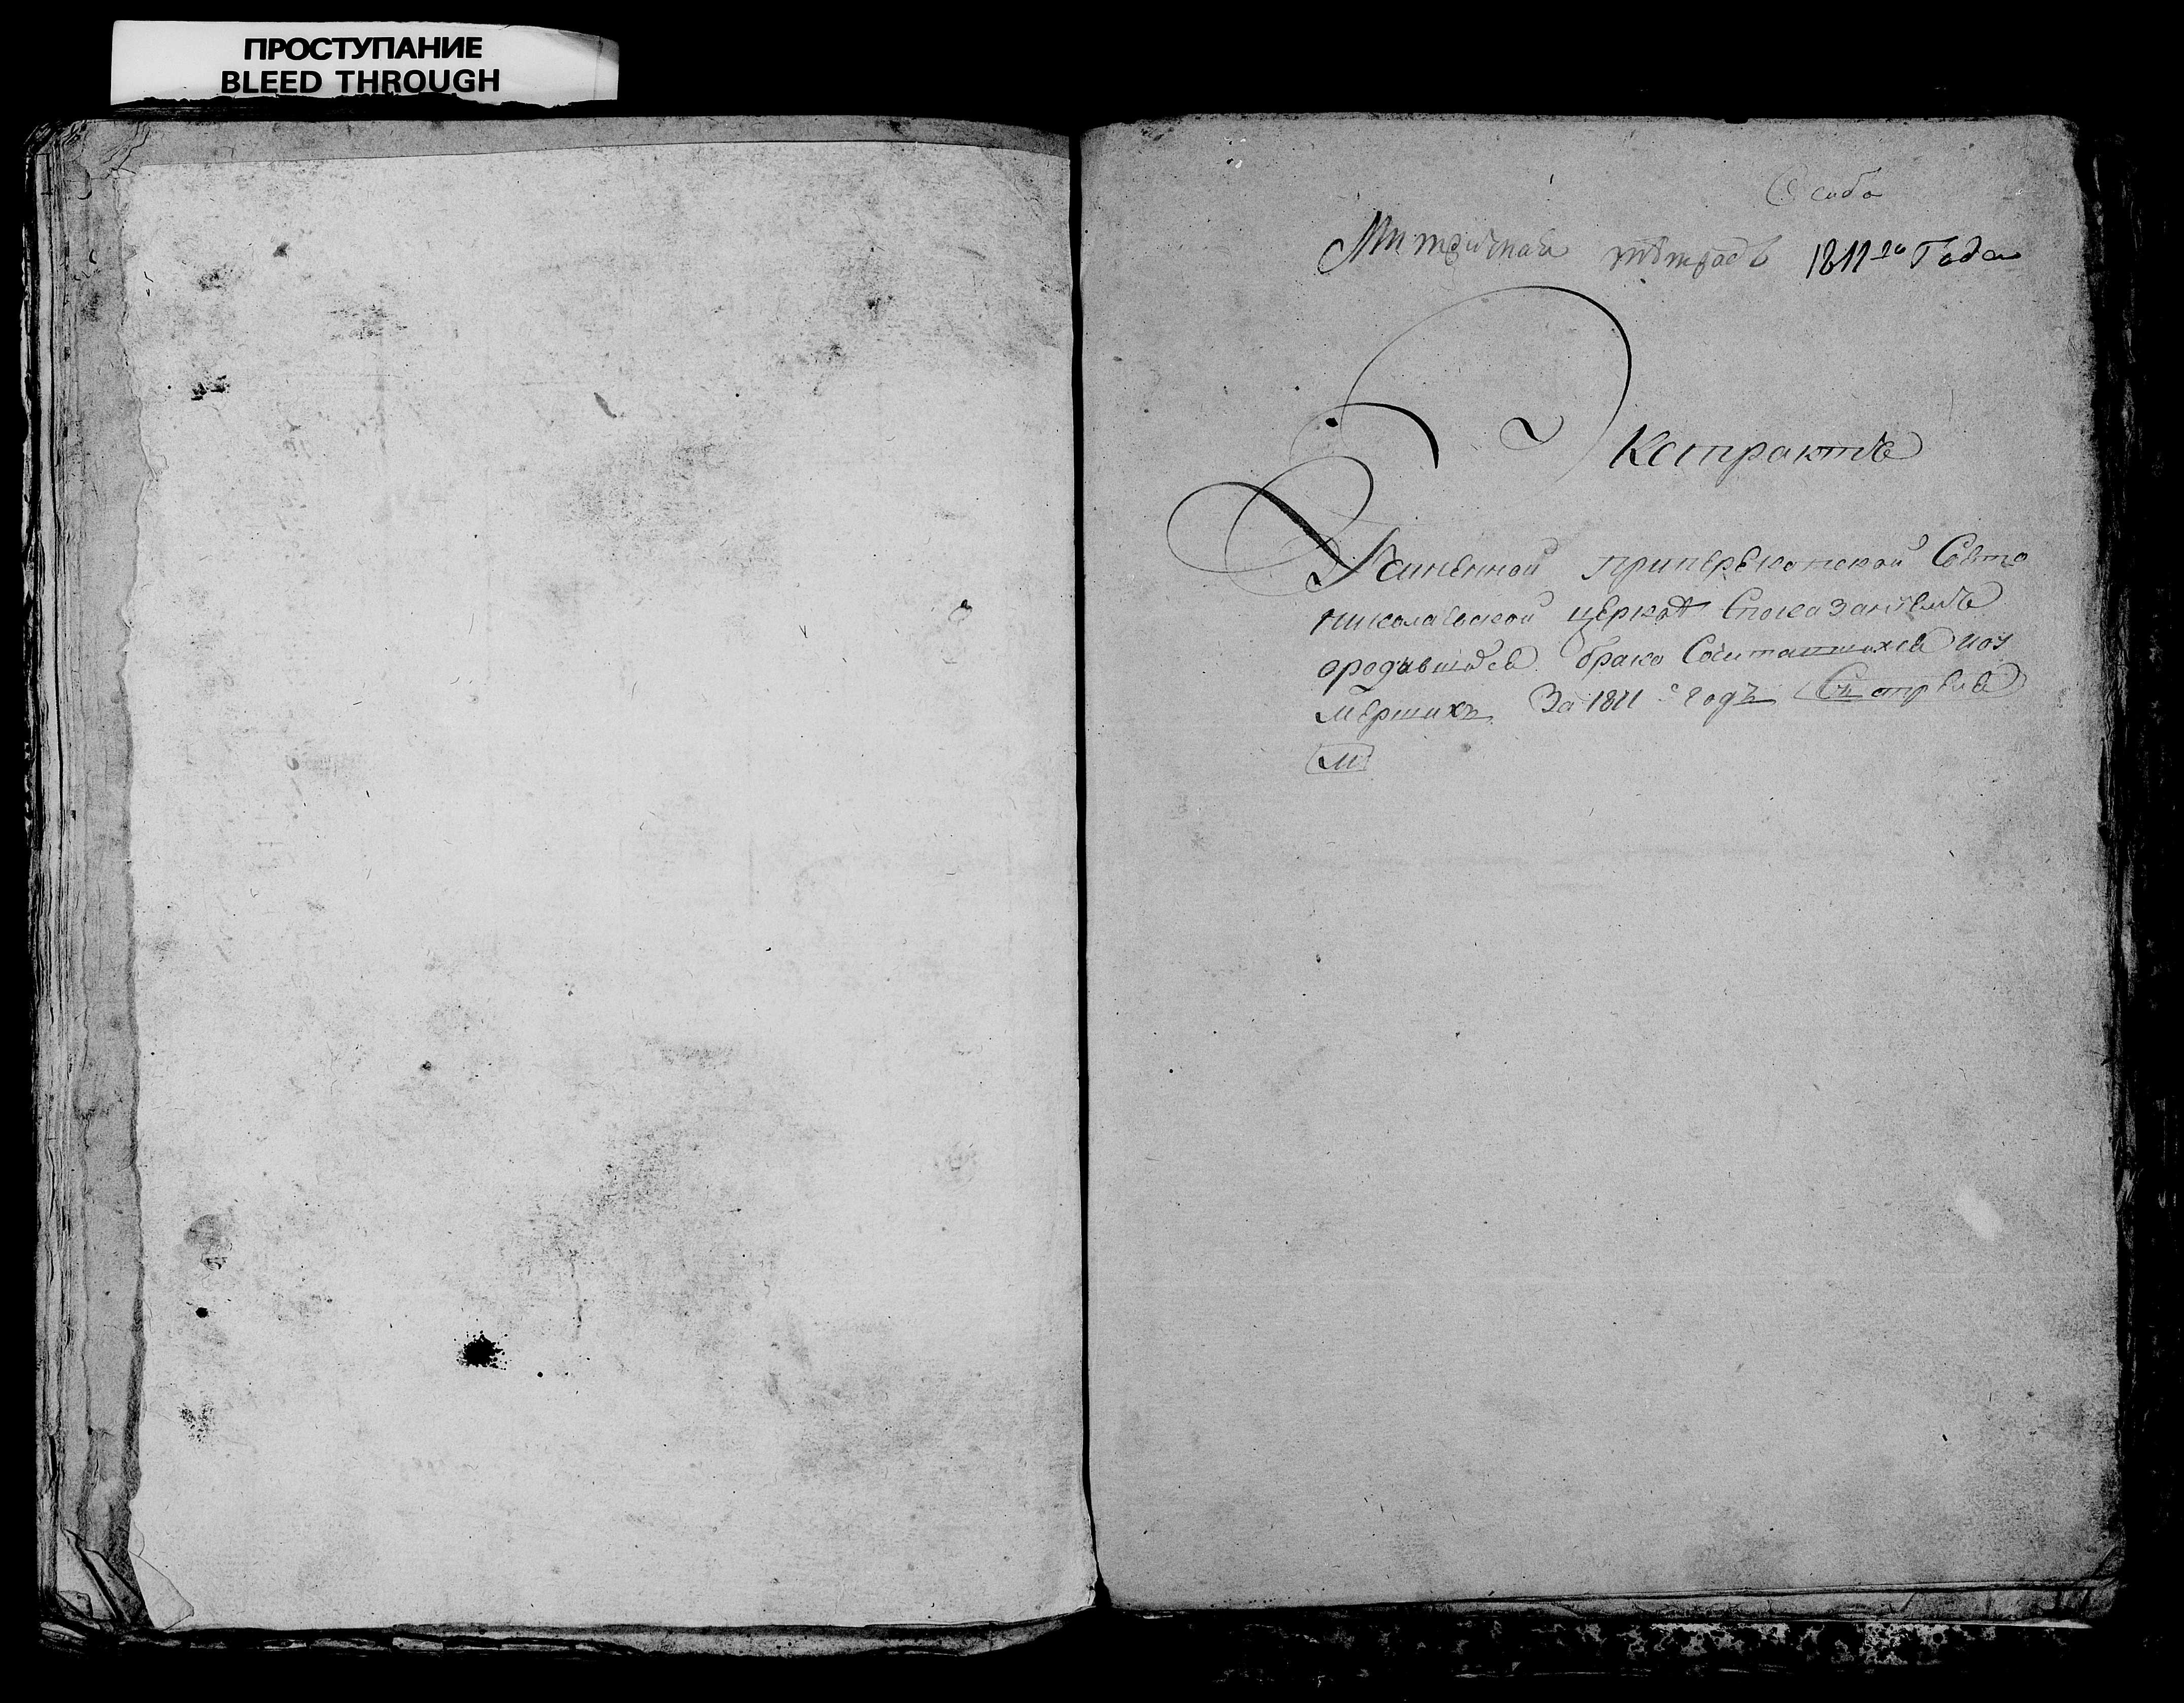 ПРОСТУПАНИЕ
BLEED THROUGH
Особо
Митричная тетрадь 1811го Года
Экстрактъ
Казиенной Свято
николаевской церкви Спокозаниемъ
ородившихся брако Сочитавшихся ноу
мершихъ За 1811й годъ